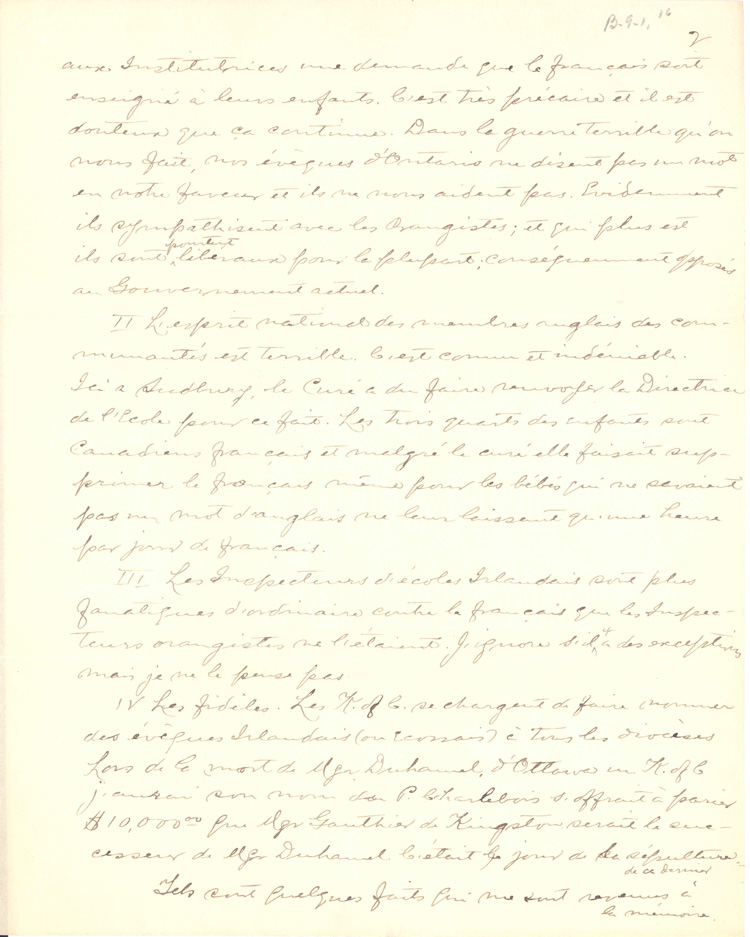 B-9-1, 16
2
aux Institutrices une demande que le français soit
enseigné à leurs enfants. C'est très précaire et il est
douteux que ça continue. Dans la guerre terrible qu'on
nous fait, nos évêques d'Ontario ne disent pas un mot
en notre faveur et ils ne nous aident pas. Evidemment
ils sympathisent avec les Orangistes; et qui plus est
ils sont pourtant libéraux pour la plupart, conséquemment opposés
au Gouvernement actuel.
II L'esprit national des membres anglais des com-
munautés est terrible. C'est connu et indéniable.
Ici a Sudbury, le Curé a du faire renvoyer la Directrice
de l'Ecole pour ce fait. Les trois quarts des enfants sont
Canadiens français et malgré le curé elle faisait sup-
primer le français même pour les bébés qui ne savaient
pas un mot d'anglais ne leur laissant qu'une heure
par jour de français.
III Les Inspecteurs d'écoles Irlandais sont plus
fanatiques d'ordinaire contre le français que les Inspec-
teurs orangistes ne l'étaient. J'ignore s'il y a des exceptions
mais je ne le pense pas
IV Les fidèles. Les K. of C. se chargent de faire nommer
des évêques Irlandais (ou Ecossais) à tous les diocèses
Lors de la mort de Mgr Duhamel, d'Ottawa un K. of C
j'aurai son nom du P. Charlebois s'offrait à parier
$10,000.00 que Mgr Gauthier de Kingston serait le suc-
cesseur de Mgr Duhamel. C'était le jour de la sépulture
de ce dernier
Tels sont quelques faits qui me sont revenus à
la mémoire.